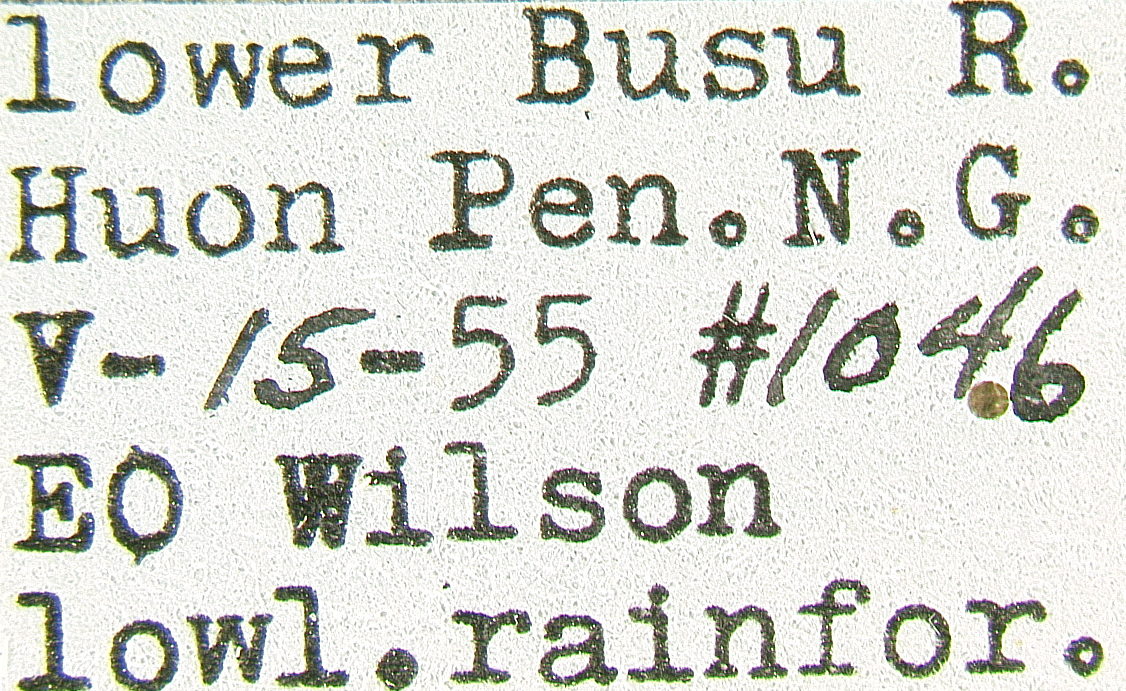 lower Busu R.
Huon Pen.N.G.
V-15-55 #1046
EO Wilson
lowl.rainfor.